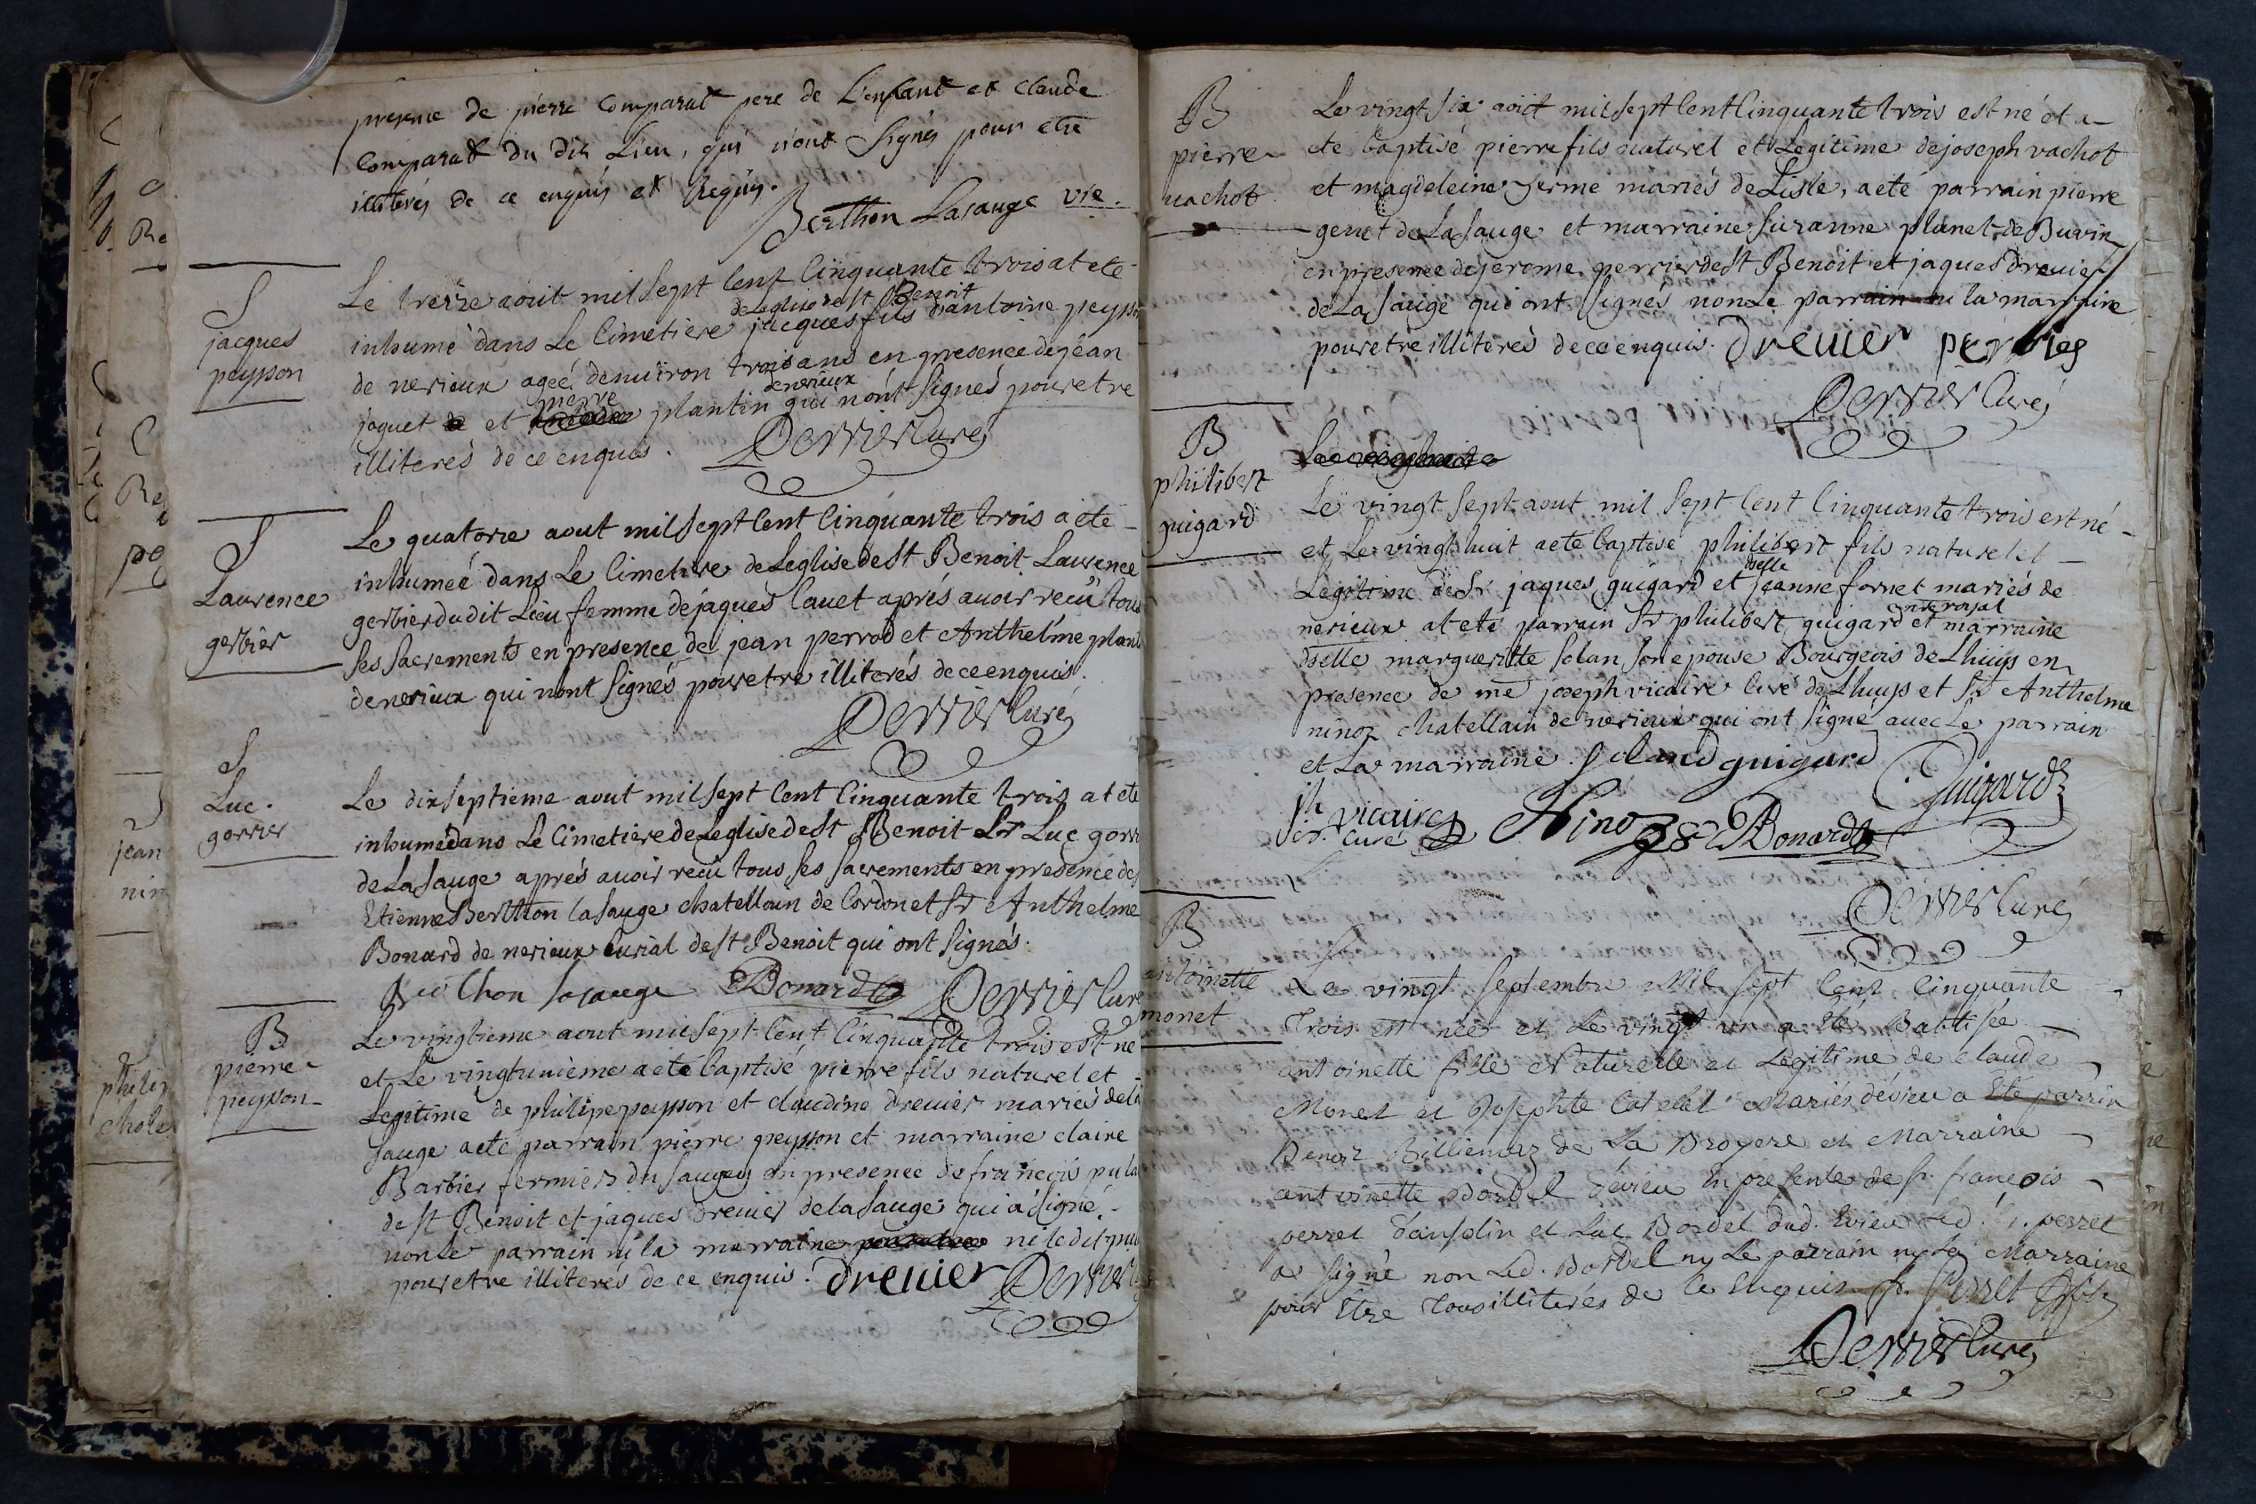 presence de pierre Comparat pere de L'enfant et Claude
Comparat du dit Lieu, qui n'ont Signés pour etre
illiterés de ce enquis et Requis.
Berthon Lasauge vie.
S
jacques
peysson
Le treize aoüt mil Sept Cent Cinquante trois at ete
de Leglise de St Benoit
inhumé dans Le Cimetiere jacques fils d'antoine peysson
de nerieux ageé denviron trois ans en presence de jéan
pierre
de nerieux
jaquet et plantin qui n'ont Signés pour etre
illiterés de ce enquis. Perrier Curé
S
Laurence
gerbier
Le quatorze aout mil Sept Cent Cinquante trois a ete
inhumeé dans Le Cimetiere de Leglise de St Benoit Laurence
gerbier du dit Lieu femme de jaques Cauet aprés avoir reçu tous
Ses Sacrements en presence de jean perrod et Anthelme plan
de nerieux qui n'ont Signés pour etre illiterés de ce enquis.
Perrier Curé
S
Luc.
gorrier
Le dixseptieme aout mil Sept Cent Cinquante trois at ete
inhumé dans Le Cimetiere de Leglise de St Benoit Sr Luc gorri
de La Sauge aprés avoir reçu tous Ses Sacrements en presence de
Etienne Berthon la Sauge chatellain de Cordon et Sr Anthelme
Bonard de nerieux Curial de St Benoit qui ont Signés.
Berthon Lasauge Bonard Perrier Curé
B
pierre
peysson
Le vingtieme aout mil Sept Cent Cinquante trois est né
et Le vingtunième a eté baptisé pierre fils naturel et
Legitime de philipe peysson et claudine Dreuier mariés de La
Sauge a eté parrain pierre peysson et marraine claire
Barbier fermiers du Saugey en presence de francois pula
de St Benoit et jaques Dreuier de la Sauge qui a Signé
non Le parrain ni la marraine ni le dit pu
pour etre illiterés de ce enquis. Dreuier Perrier
B
pierre
vachot
Le vingt six aoüt mil Sept Cent Cinquante trois est né et a
ete baptisé pierre fils naturel et Legitime de joseph vachot
et magdeleine ferme mariés de Lisle, a eté parrain pierre
genet de La Sauge et marraine Suzanne planet de Buvin
en presence de jerome perrier de St Benoit et jaques Dreuier
de La Sauge qui ont Signés non Le parrain ni la marraine
pour etre illiterés de ce enquis. Dreuier perrier
Perrier Curé
B
philibert
guigard
Le vingt Sept aout mil Sept Cent Cinquante trois est né
et Le vingt huit a eté baptisé philibert fils naturel et
delle
Legitime de Sr jaques guigard et jeanne fornet mariés de
nre royal
nerieux at eté parrain Sr philibert guigard et marraine
Delle margueritte Solan Son epouse Bourgeois de Lhuys en
presence de me joseph vicaire Curé de Lhuys et Sr Anthelme
ninoz chatellain de nerieux qui ont Signé avec Le parrain
et La marraine. Soland guigard
Guigard
jh vicaire
Curé Ninoz Bonard
Perrier Curé
B
antoinette
monet
Le vingt Septembre Mil Sept Cent Cinquante
Trois est neé et Le vingt un a Eté Battisée
antoinette fille Naturelle et Legitime de Claude
Monet et Josephte Catelet Mariés d'évieu a Eté parrin
Benoit Billiemaz de La Broyere et Marraine
antoinette Bordel d'evieu En presence de Sr. françois
perret d'anselin et Luc Bordel dud. Evieu Led. Sr. perret
a Signé non Led. Bordel ny Le parrain ny La Marraine
pour Etre Tous illiterés de Ce Enquis fr. Perret
Perrier Curé